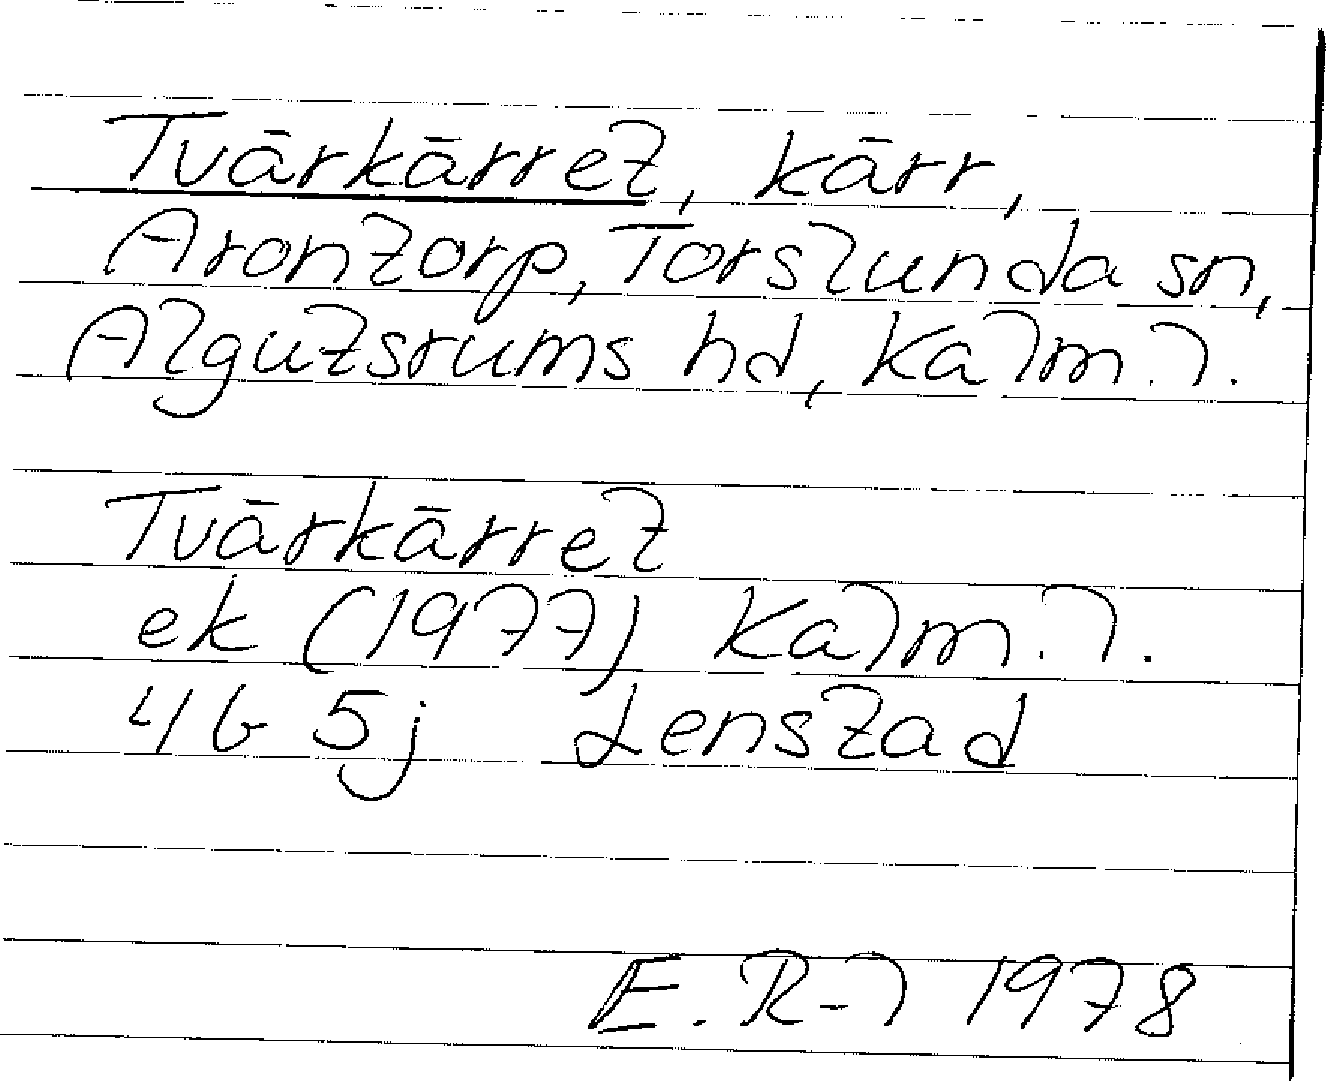 Tvärkärret, kärr,
Arontorp, Torslunda sn,
Algutsrums hd, Kalm. l.
Tvärkärret
ek (1977) Kalm. l.
4G 5j Lenstad
E. R-l 1978